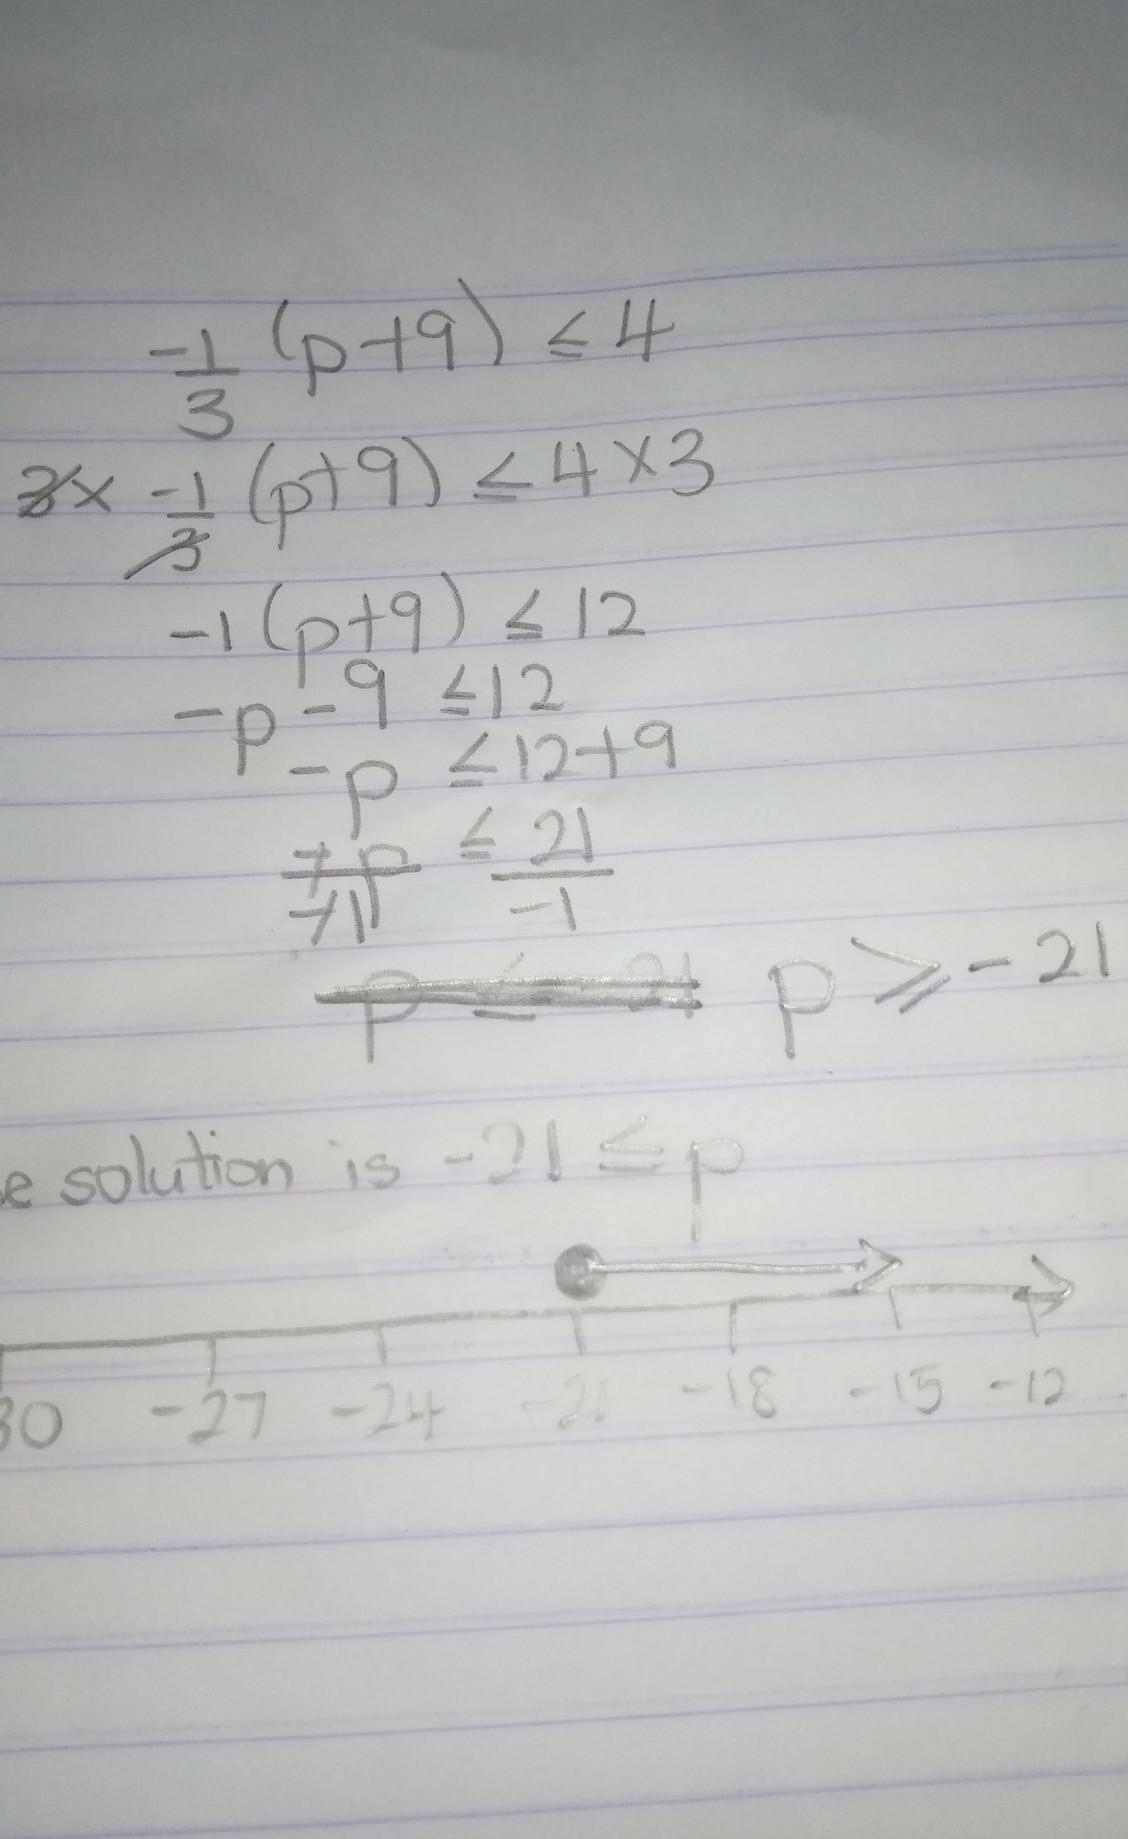 -1/3 (p+9) ≤ 4
3x -1/3 (p+9) ≤ 4 x 3
-1(p+9) ≤ 12
-p - 9 ≤ 12
-p ≤ 12+9
-p/-1 ≤ 21/-1
p ≤ 21 p ≥ -21
e solution is -21 ≤ p
30 -27 -24 -21 -18 -15 -12